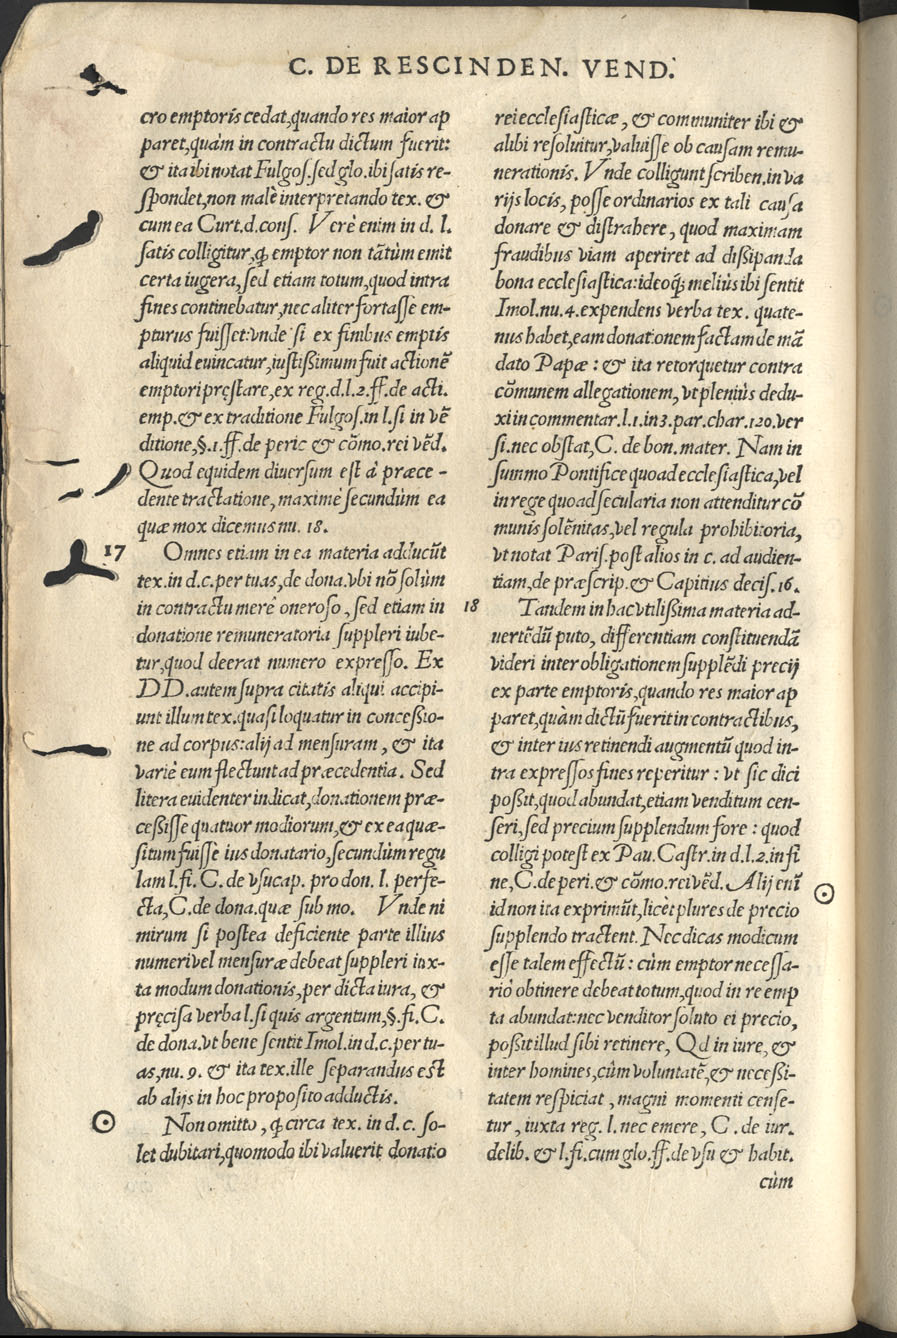 C. DE RESCINDEN. VEND.
cro emptoris cedat, quando res maior ap
paret, quàm in contractu dictum fuerit:
& ita ibi notat Fulgos. sed glo. ibi satis re-
spondet, non malè interpretando tex. &
cum ea Curt. d. cons. Verè enim in d. l.
satis colligitur, ꝙ emptor non tātùm emit
certa iugera, sed etiam totum, quod intra
fines continebatur, nec aliter fortassè em-
pturus fuisset: vnde si ex finibus emptis
aliquid euincatur, iustißimum fuit actionē
emptori pręstare, ex reg. d. l. 2. ff. de acti.
emp. & ex traditione Fulgos. in l. si in vē
ditione, §. 1. ff. de peric & cōmo. rei vēd.
Quod equidem diuersum est à præce-
dente tractatione, maximè secundùm ea
quæ mox dicemus nu. 18.
17 Omnes etiam in ea materia adducūt
tex. in d. c. per tuas, de dona. vbi nō solùm
in contractu merè oneroso, sed etiam in
donatione remuneratoria suppleri iube-
tur, quod deerat numero expresso. Ex
DD. autem supra citatis aliqui accipi-
unt illum tex. quasi loquatur in conceßio-
ne ad corpus: alij ad mensuram, & ita
variè eum flectunt ad præcedentia. Sed
litera euidenter indicat, donationem præ-
ceßisse quatuor modiorum, & ex ea quæ-
situm fuissè ius donatario, secundùm regu
lam l. fi. C. de vsucap. pro don. l. perfe-
cta, C. de dona. quæ sub mo. Vnde ni
mirum si postea deficiente parte illius
numeri vel mensuræ debeat suppleri iux-
ta modum donationis, per dicta iura, &
pręcisa verba l. si quis argentum, §. fi. C.
de dona. vt bene sentit Imol. in d. c. per tu-
as, nu. 9. & ita tex. ille separandus est
ab alijs in hoc proposito adductis.
Non omitto, ꝙ circa tex. in d. c. so-
let dubitari, quomodo ibi valuerit donatio
rei ecclesiasticæ, & communiter ibi &
alibi resoluitur, valuisse ob causam remu-
nerationis. Vnde colligunt scriben. in va
rijs locis, posse ordinarios ex tali causa
donare & distrahere, quod maximam
fraudibus viam aperiret ad dißipanda
bona ecclesiastica: ideoq́; meliùs ibi sentit
Imol. nu. 4. expendens verba tex. quate-
nus habet, eam donationem factam de mā
dato Papæ: & ita retorquetur contra
cōmunem allegationem, vt pleniùs dedu-
xi in commentar. l. 1. in 3. par. char. 120. ver
si. nec obstat, C. de bon. mater. Nam in
summo Pontifice quoad ecclesiastica, vel
in rege quoad secularia non attenditur cō
munis solēnitas, vel regula prohibitoria,
vt notat Paris. post alios in c. ad audien-
tiam, de præscrip. & Capitius decis. 16.
18 Tandem in hac vtilißima materia ad-
uertēdū puto, differentiam constituendā
videri inter obligationem supplēdi precij
ex parte emptoris, quando res maior ap
paret, quàm dictū fuerit in contractibus,
& inter ius retinendi augmentū quod in-
tra expressos fines reperitur: vt sic dici
poßit, quod abundat, etiam venditum cen-
seri, sed precium supplendum fore: quod
colligi potest ex Pau. Castr. in d. l. 2. in fi
ne, C. de peri. & cōmo. rei vēd. Alij enī
id non ita exprimūt, licèt plures de precio
supplendo tractent. Nec dicas modicum
esse talem effectū: cùm emptor necessa-
riò obtinere debeat totum, quod in re emp
ta abundat: nec venditor soluto ei precio,
poßit illud sibi retinere, Qd in iure, &
inter homines, cùm voluntatē, & neceßi-
tatem respiciat, magni momenti cense-
tur, iuxta reg. l. nec emere, C. de iur.
delib. & l. fi. cum glo. ff. de vsu & habit.
cùm